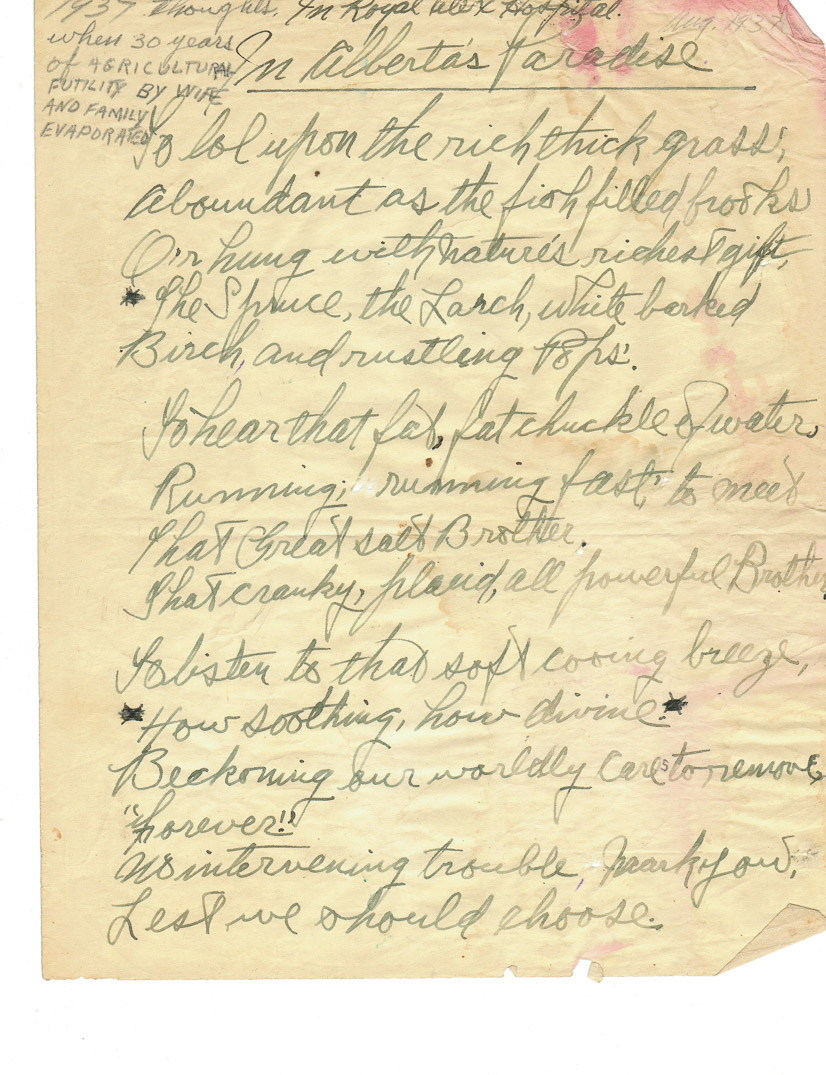 1937 thoughts. In Royal Alex Hospital.
Aug. 1937
when 30 years
OF AGRICULTURAL
FUTILITY BY WIFE
AND FAMILY
EVAPORATED
In Alberta's Paradise
To lol upon the rich thick grass,
Abundant as the fish filled brooks
O'r hung with nature's richest gift,
The Spruce, the Larch, white barked
Birch, and rustling Pops.
To hear that fat, fat chuckle of water,
Running, running fast, to meet
That Great salt Brother.
That cranky, placid, all powerful Brother
To listen to that soft cooing breeze,
How soothing, how divine.
Beckoning our worldly cares to remove,
"forever!"
No intervening trouble, Mark you,
Lest we should choose.